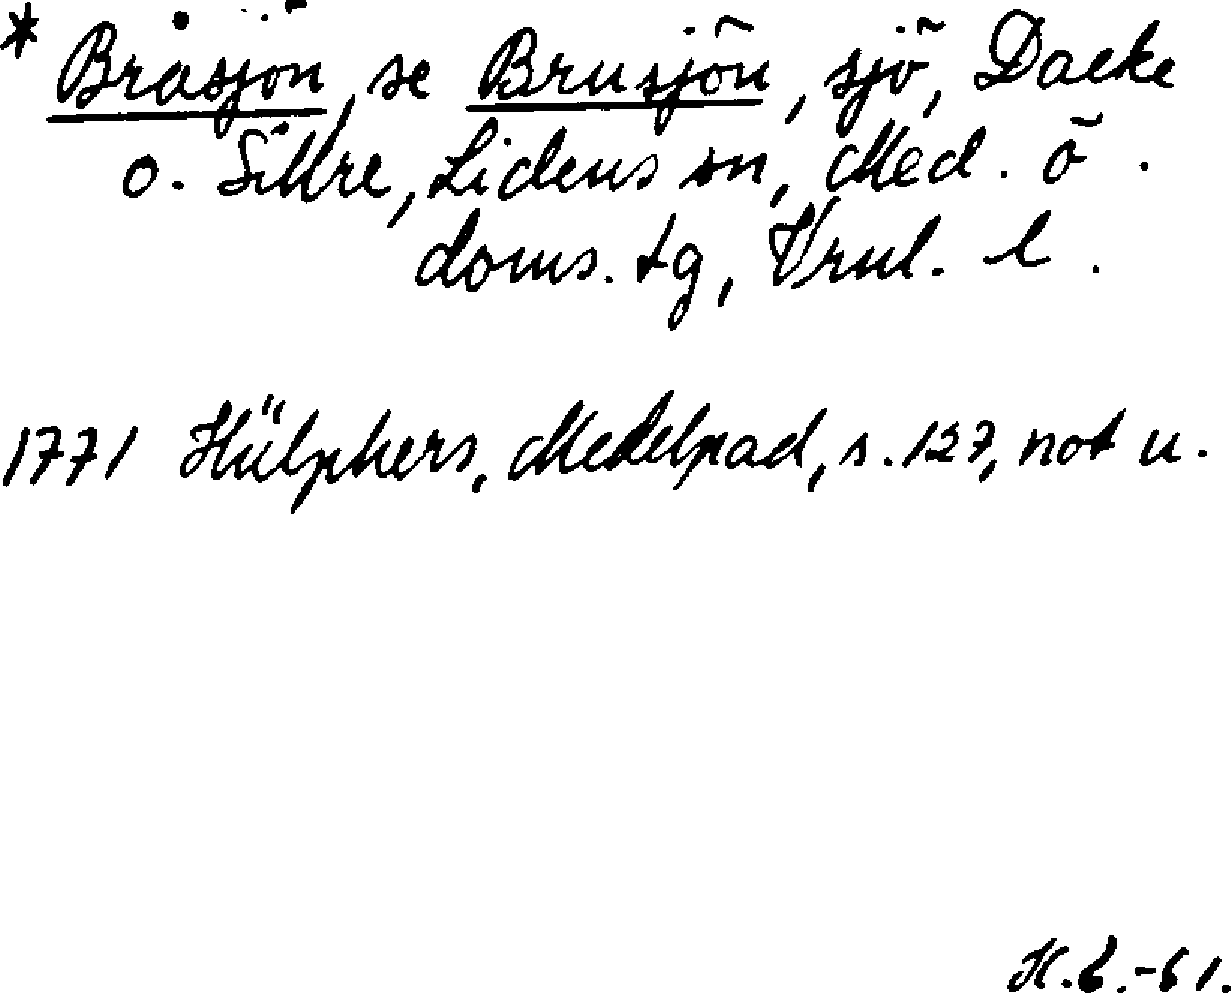 * Bråsjön, se Brusjön, sjö, Dacke
o. Sillre, Lidens sn, Med. ö.
doms. tg, Vrnl. l.
1771 Hülphers, Medelpad, s. 127, not u.
H.6.-61.